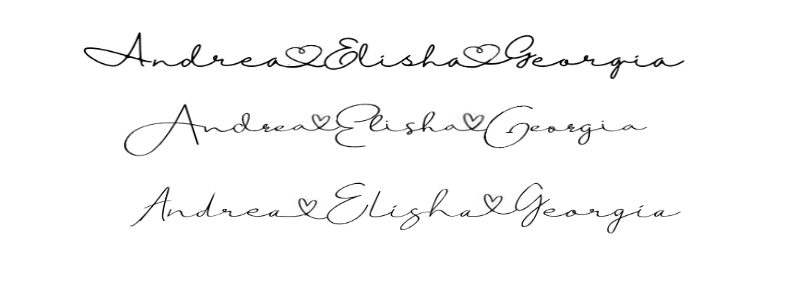 Andrea♡Elisha♡Georgia
Andrea♡Elisha♡Georgia
Andrea♡Elisha♡Georgia